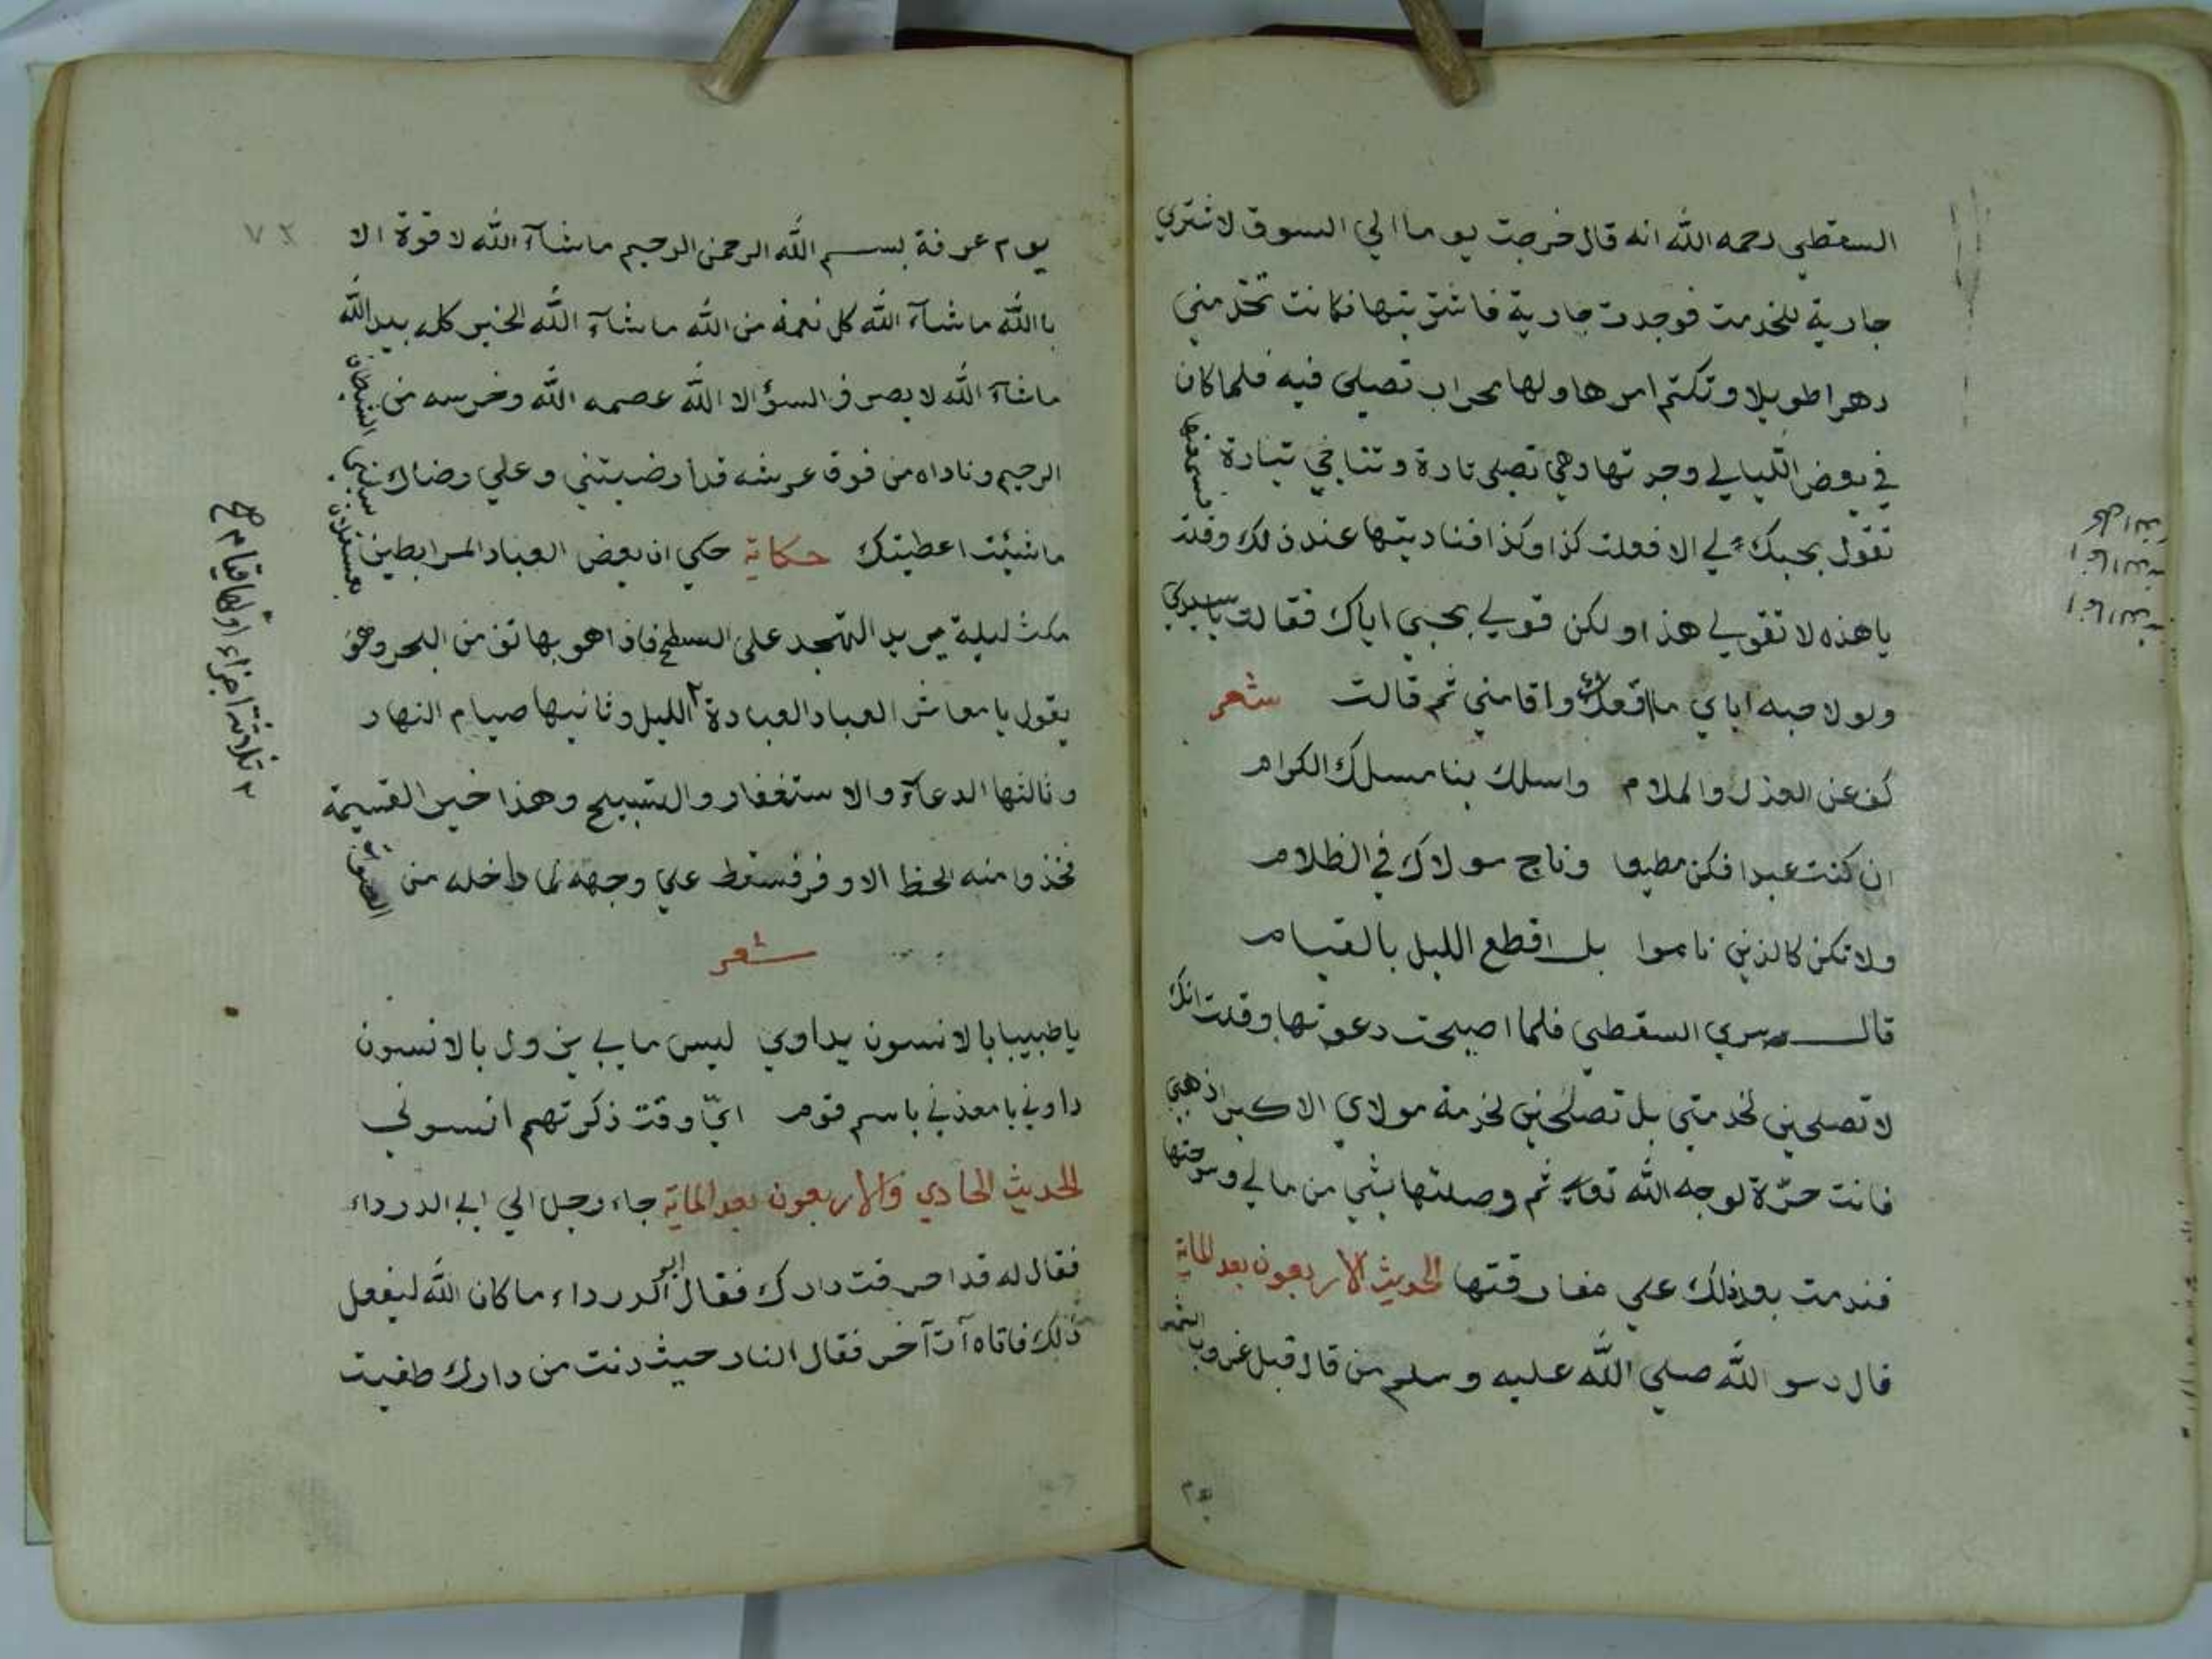 السقطي رحمه الله انه قال خرجت يوما الي السوق لاشتري
جارية للخدمت فوجدت جارية فاشتريتها فكانت تخدمني
دهرا طويلا وتكتم امرها ولها محراب تصلي فيه فلما كان
في بعض الليالي وجدتها وهي تصلي تارة وتناجي تبارة فسمعتها
تقول بحبك لي الا فعلت كذا وكذا فناديتها عند ذلك وقلت
ياهذه لا تقولي هذا ولكن قولي بحبي اياك فقالت ياسيدي
ولولا حبه اياي ما اقعدك واقامني ثم قالت شعر
كف عن العذل والملام واسلك بنا مسلك الكرام
ان كنت عبدا فكن مطيعا وناج مولاك في الظلام
ولا تكن كالذين ناموا بل اقطع الليل بالقيام
قال سري السقطي فلما اصبحت دعوتها وقلت انك
لا تصلحين لخدمتي بل تصلحين لخدمة مولاي الاكبر اذهبي
فانت حرّة لوجه الله تعالي ثم وصلتها بشي من مالي وسرحتها
فندمت بعد ذلك علي مفارقتها الحديث الاربعون بعد الماية
قال رسو الله صلي الله عليه وسلم من قال قبل غروب الشمس
يوم
يوم عرفة بسم الله الرحمن الرحيم ماشآء الله لا قوة الا
باالله ماشآء الله كل نعمة من الله ماشآء الله الخير كله بيد الله
ماشآء الله لا يصرف السؤ الا الله عصمه الله وحرسه من الشيطان
الرجيم وناداه من فوق عرشه قد ارضيتني وعلي رضاك سلني
ماشئت اعطيتك حكاية حكي ان بعض العباد المرابطين بعسقلان
مكث ليلة يريد التهجد علي السطح فاذا هو بهاتف من البحر وهو
يقول يامعاشر العباد العبادة ٢ الليل وثانيها صيام النهار
وثالثها الدعآء والاستغفار والتسبيح وهذا خير القسيمة
فخذوا منه الحظ الاوفر فسقط علي وجهه لما داخله من الصوت
شعر
ياطبيبا بالانسون يداوي ليس مابي يزول بالانسون
داوني يا معذبي باسم قوم ايّ وقت ذكرتهم انسوني
الحديث الحادي والاربعون بعد الماية جاء رجل الي ابي الدرداء
فقال له قد احرقت دارك فقال ابو الدرداء ما كان الله ليفعل
ذلك فاتاه آت آخر فقال النار حيث دنت من دارك طفيت
٢ ثلاثة اجزاء اولها قيام صح
٧٢